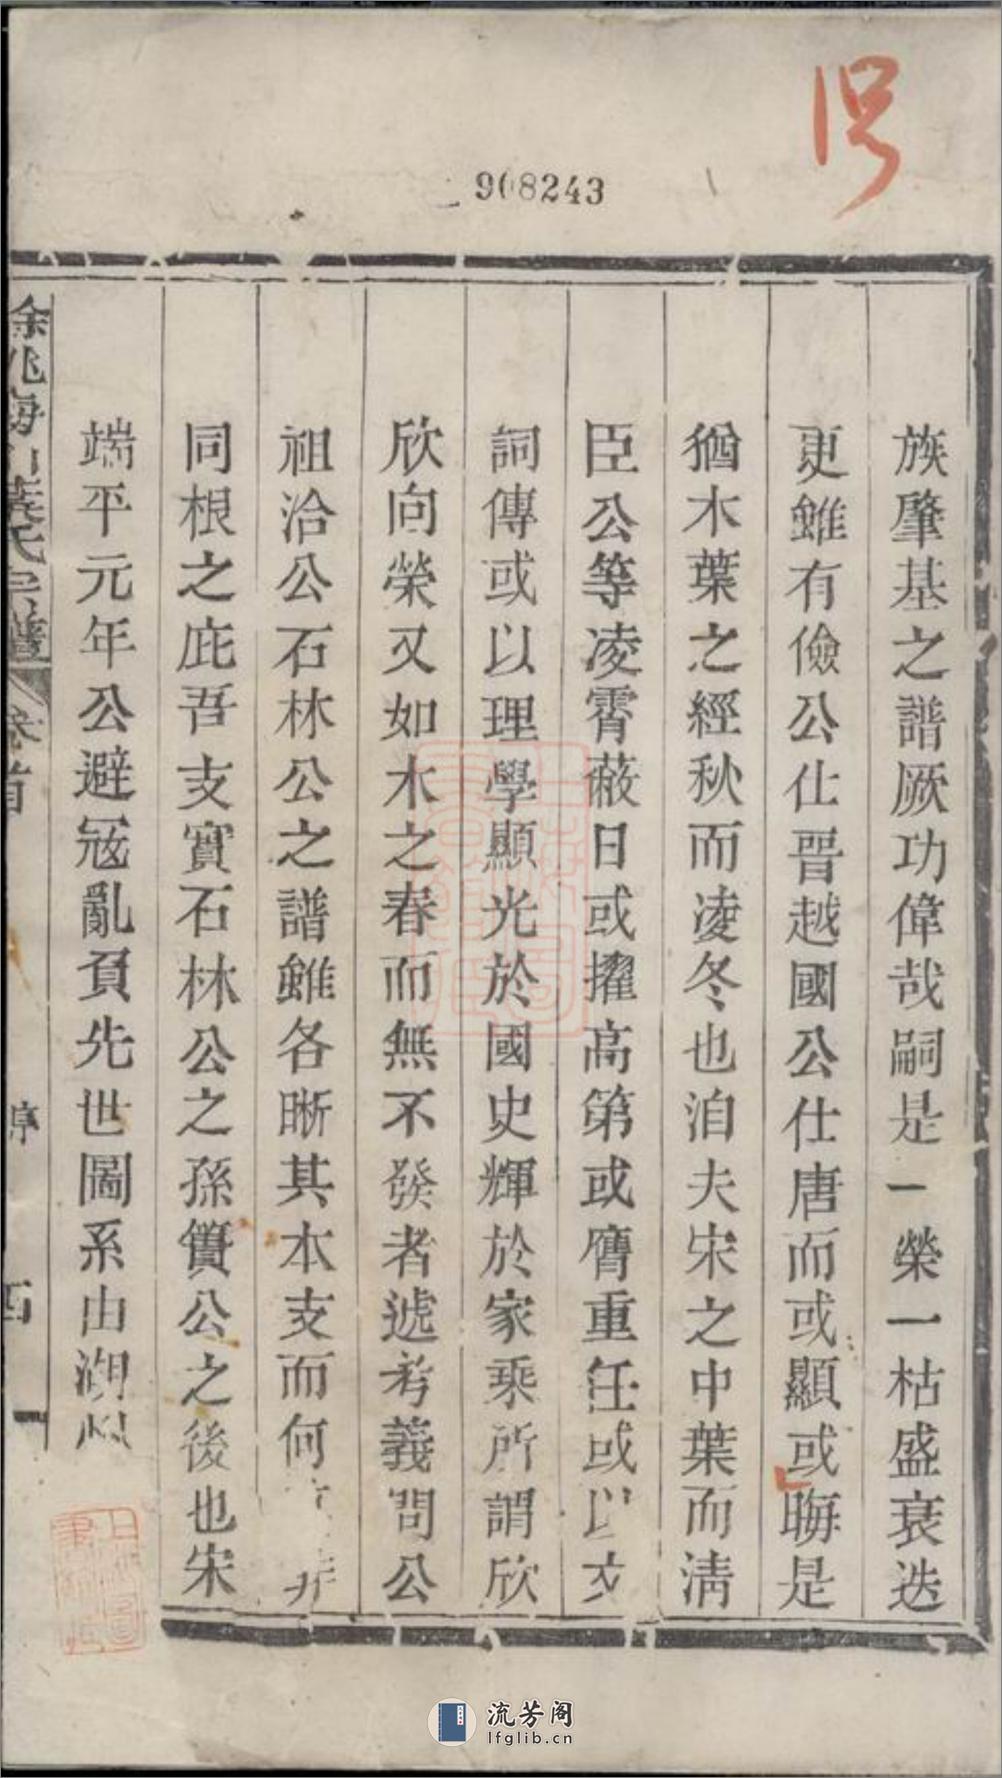 908243
族肇基之譜厥功偉哉嗣是一榮一枯盛衰迭
更雖有儉公仕晋越國公仕唐而或顯或晦是
猶木葉之經秋而凌冬也洎夫宋之中葉而淸
臣公等凌霄蔽日或擢高第或膺重任或以文
詞傳或以理學顯光於國史輝於家乘所謂欣
欣向榮又如木之春而無不發者逑考義問公
祖洽公石林公之譜雖各晣其本支而何非
同根之庇吾支實石林公之孫簣公之後也宋
端平元年公避冦亂負先世圖系由湖州
餘姚海山葉氏宗譜 卷首 序 四
流芳阁
lfglib.cn